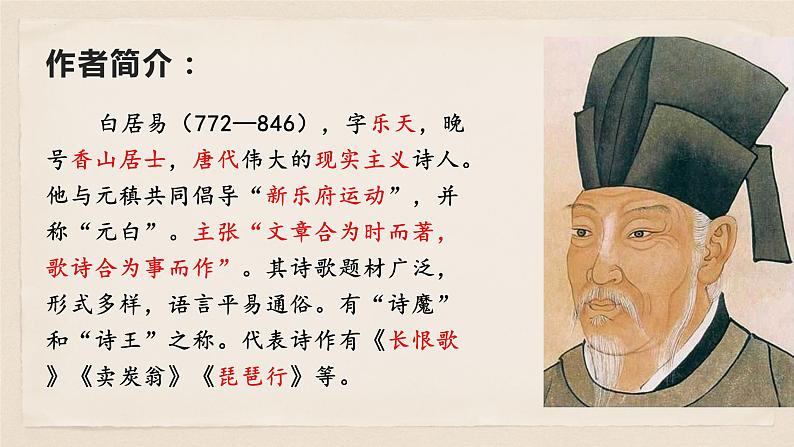 作者简介：
白居易（772—846），字乐天，晚
号香山居士，唐代伟大的现实主义诗人。
他与元稹共同倡导“新乐府运动”，并
称“元白”。主张“文章合为时而著，
歌诗合为事而作”。其诗歌题材广泛，
形式多样，语言平易通俗。有“诗魔”
和“诗王”之称。代表诗作有《长恨歌
》《卖炭翁》《琵琶行》等。